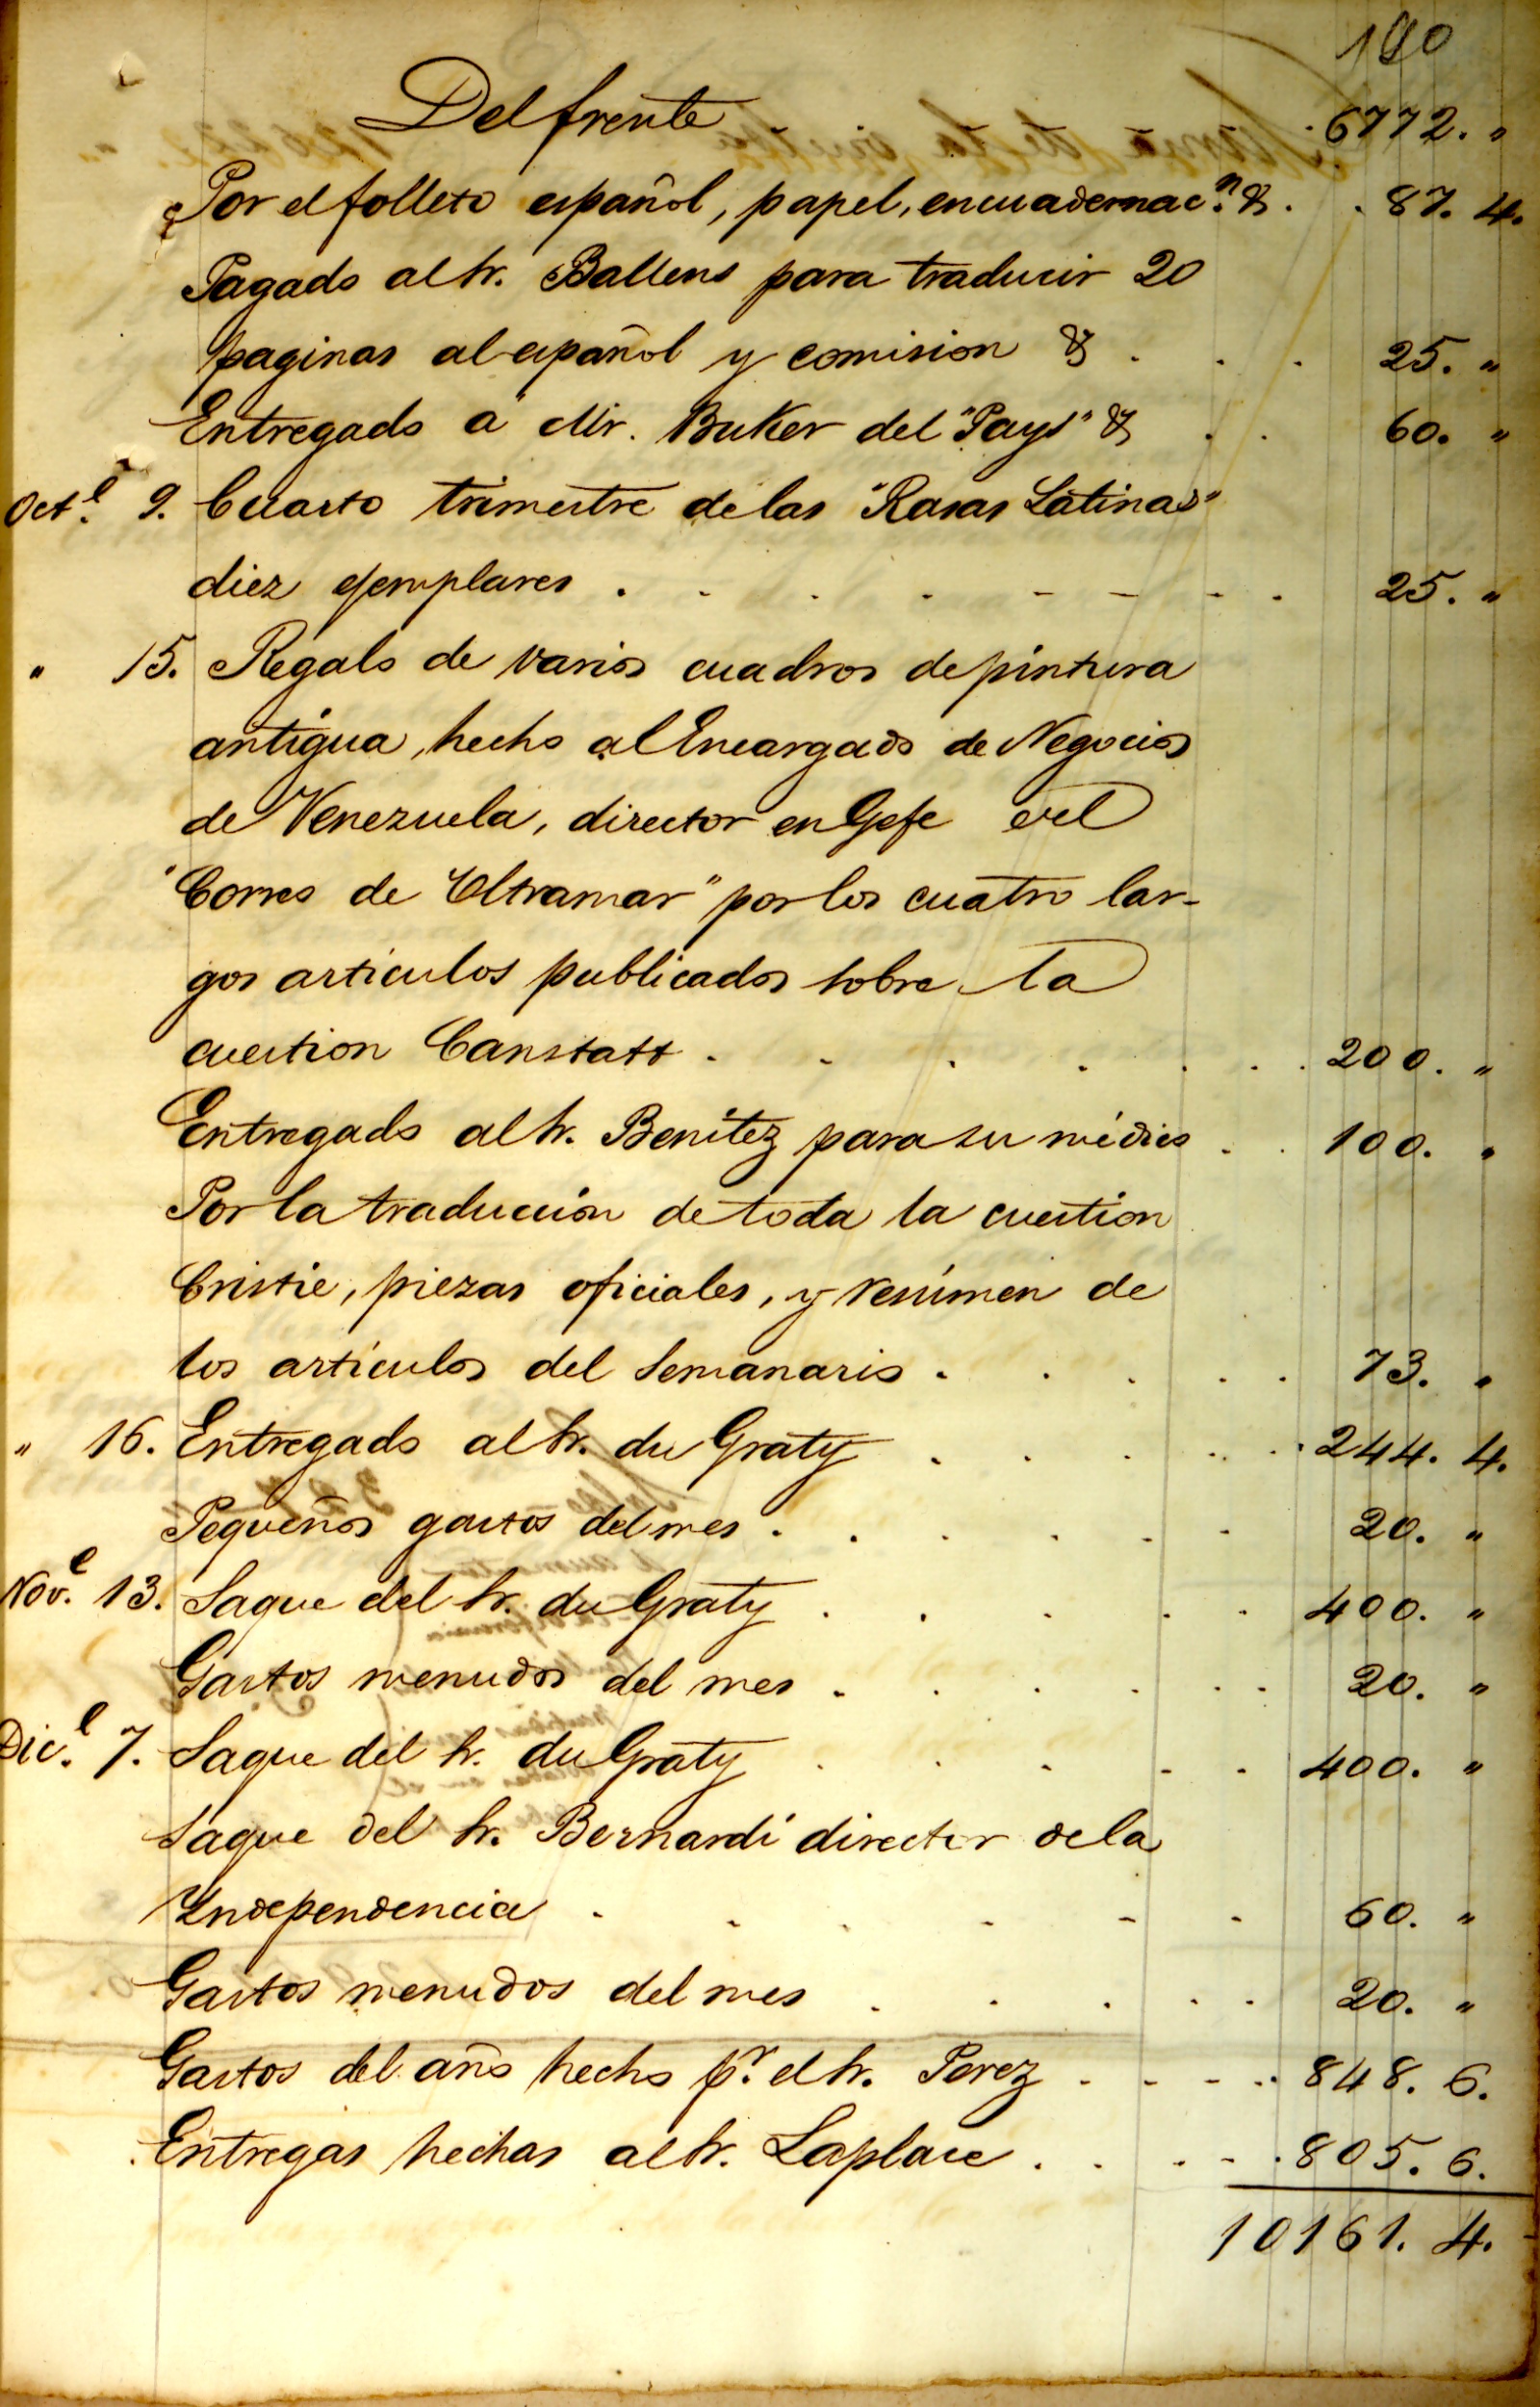 100
Del frente 6772. "
Por el folleto español, papel, encuadernac.n & . . 87. 4.
Pagado al Sr. Ballens para traducir 20
paginas al español y comision & . . . 25. "
Entregado a Mr. Buker del "Pays" & . . 60. "
Oct.e 9. Cuarto trimestre de las "Rasas Latinas"
diez ejemplares . . . . - - - . 25. "
" 15. Regalo de varios cuadros de pintura
antigua, hecho al Encargado de Negocios
de Venezuela, director en Gefe del
"Correo de Ultramar" por los cuatro lar-
gos articulos publicados sobre la
cuestion Canstatt . . . . . . . 200. "
Entregado al Sr. Benitez para su médico . . 100. "
Por la traduccion de toda la cuestion
Cristie, piezas oficiales, y resúmen de
los artículos del Semanario . . . . . 73. "
" 16. Entregado al Sr. du Graty . . . . . 244. 4.
Pequeños gastos del mes . . . . - - 20. "
Nov.e 13. Saque del Sr. du Graty . . . . . 400. "
Gastos menudos del mes . . . . . . 20. "
Dic.e 7. Saque del Sr. du Graty . . . - . 400. "
Saque del Sr. Bernardi director de la
Independencia . . . - - - 60. "
Gastos menudos del mes . . . . . 20. "
Gastos del año hecho p.r el Sr. Perez . - - - . 848. 6.
Entregas hechas al Sr. Laplace . . - - . 805. 6.
10161. 4.